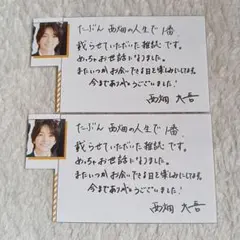 たぶん 西畑の人生で1番
載らせていただいた雑誌です。
めっちゃお世話になりました。
またいつかお会いできる日を楽しみにしてます。
今までありがとうございました!
西畑 大吾
たぶん 西畑の人生で1番
載らせていただいた雑誌です。
めっちゃお世話になりました。
またいつかお会いできる日を楽しみにしてます。
今までありがとうございました!
西畑 大吾